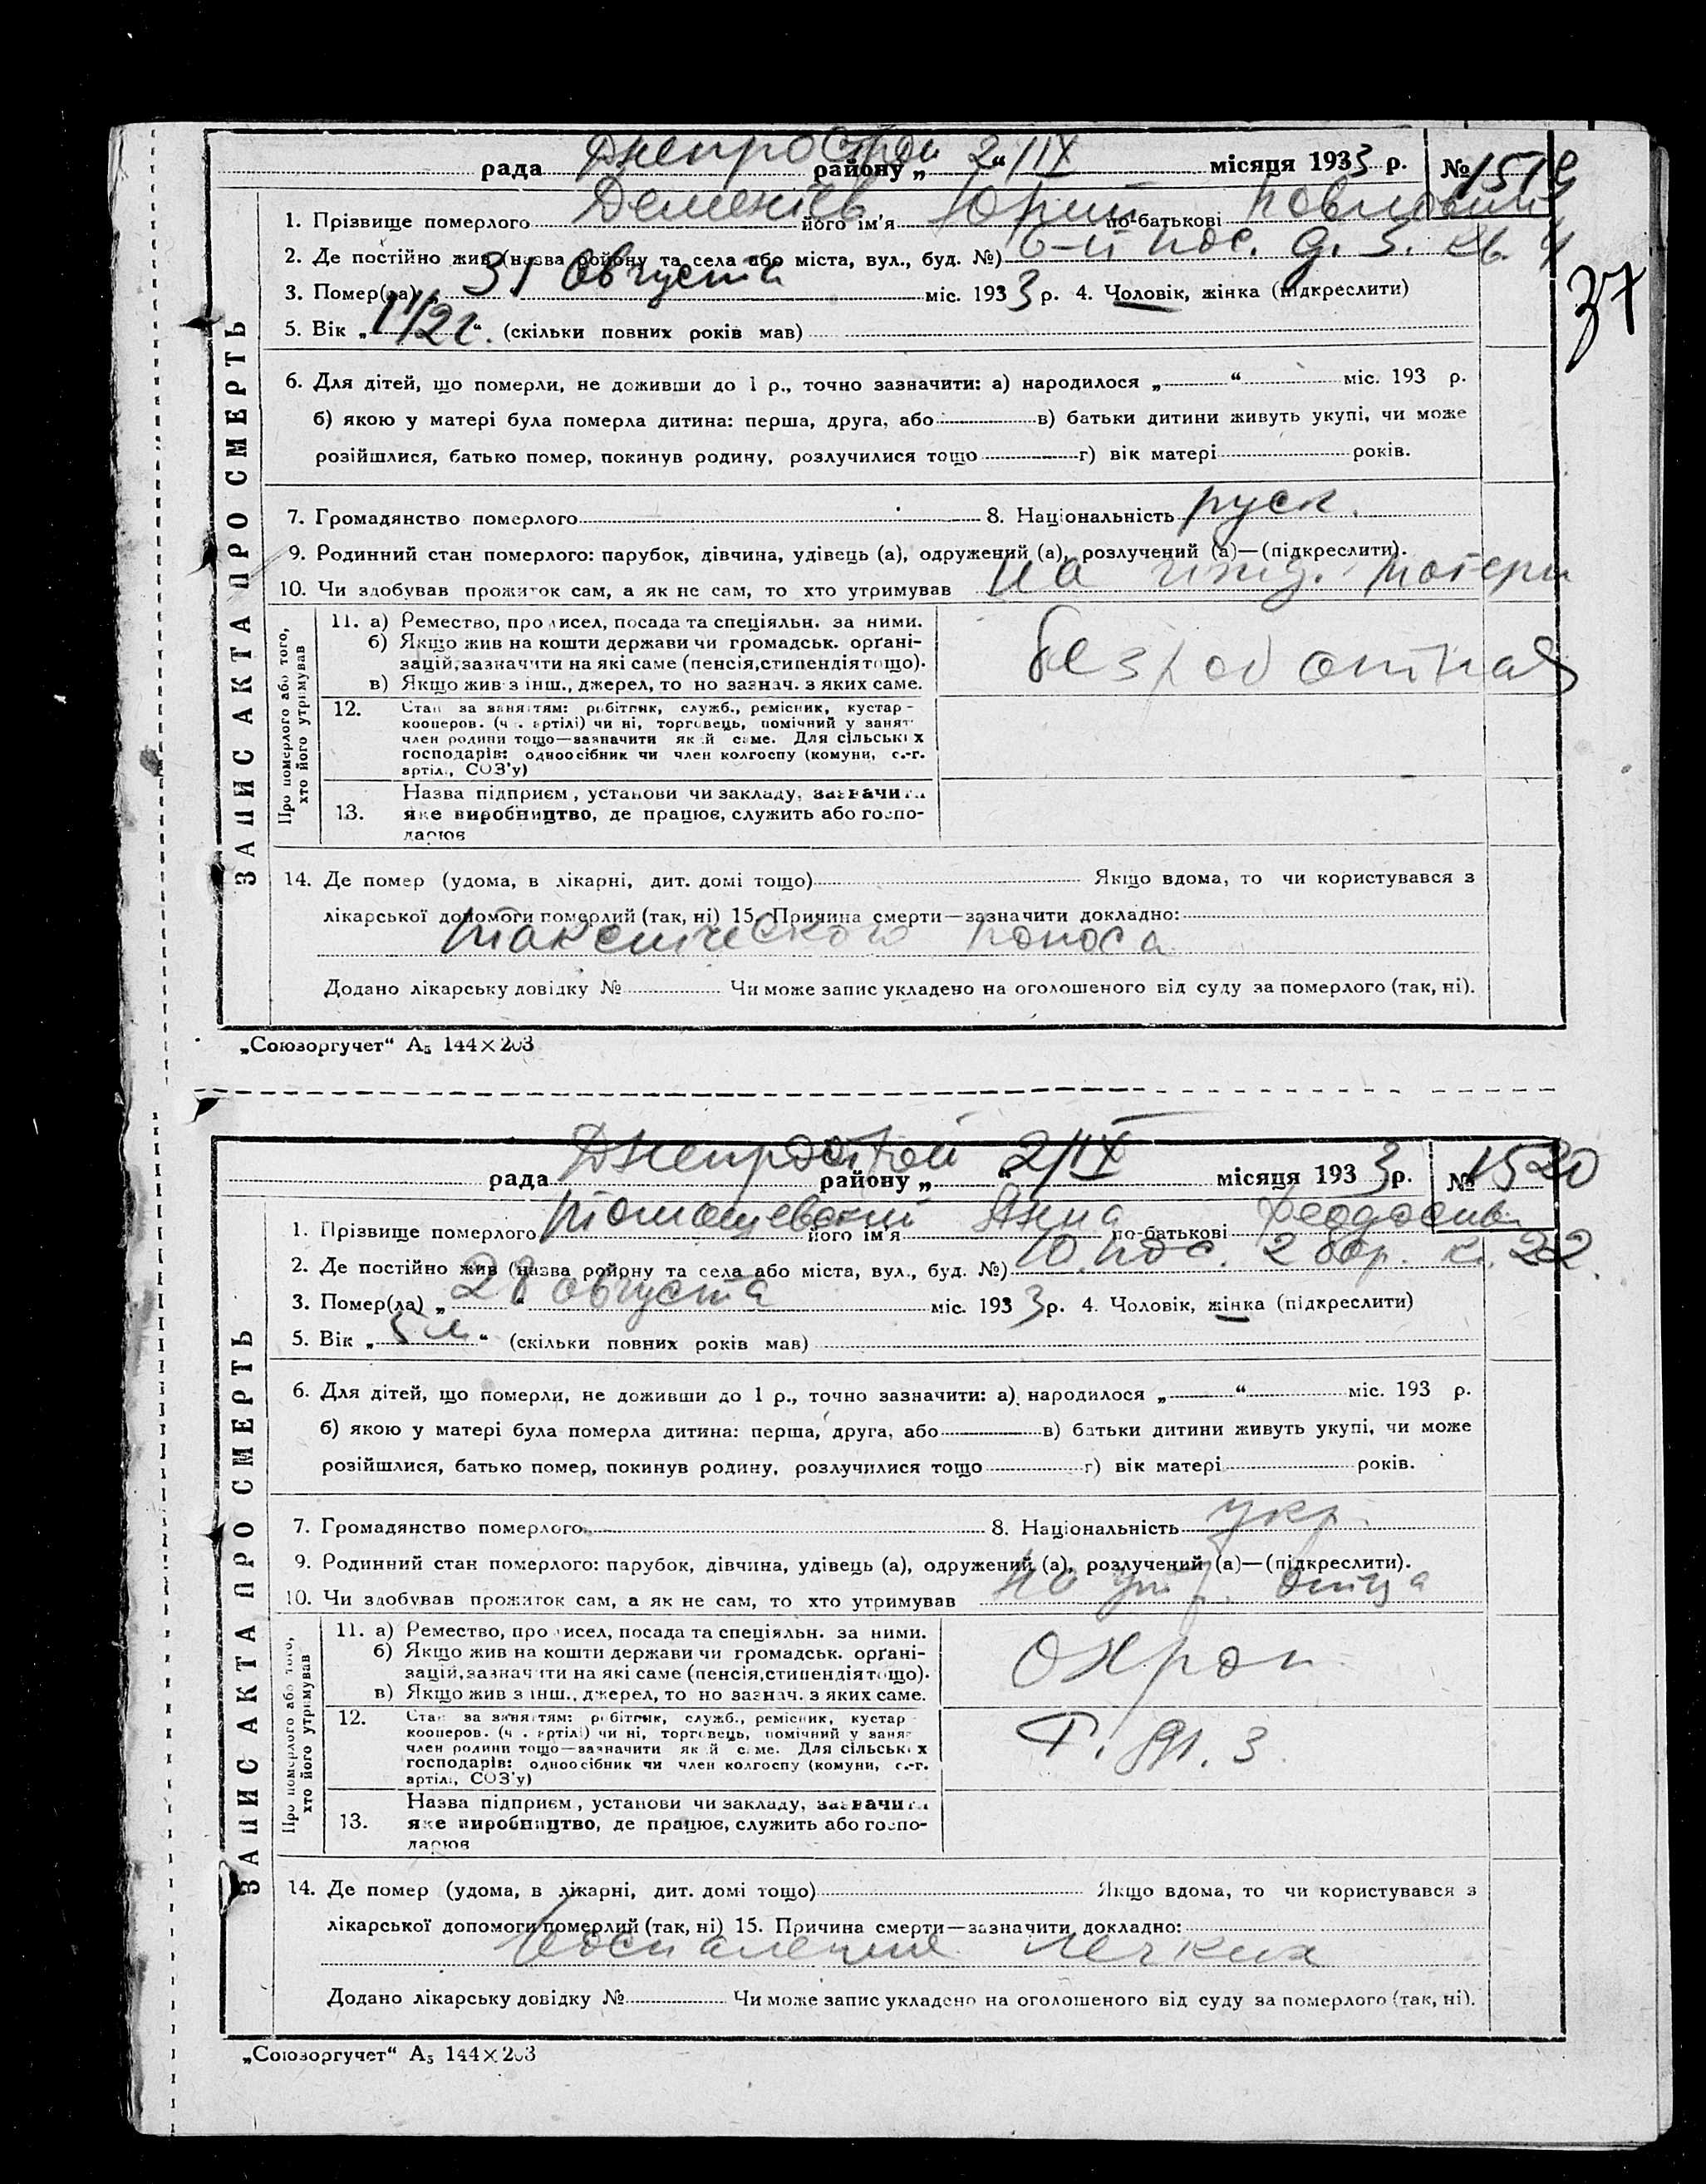 рада Днепрострой району „ 2 “ IX місяця 1933 р. № 1519
37
ЗАПИС АКТА ПРО СМЕРТЬ
1. Прізвище померлого його ім'я Юрий по-батькові Павлович
2. Де постійно жив (назва району та села або міста, вул., буд. №) 6-й пос. д. 3. кв. 4
3. Помер(ла) „ 31 августа міс. 1933 р. 4. Чоловік, жінка (підкреслити)
5. Вік „ 1 1/2 г. “ (скільки повних років мав)
6. Для дітей, що померли, не доживши до 1 р., точно зазначити: а) народилося „ “ міс. 193 р.
б) якою у матері була померла дитина: перша, друга, або в) батьки дитини живуть укупі, чи може
розійшлися, батько помер, покинув родину, розлучилися тощо г) вік матері років.
7. Громадянство померлого 8. Національність руск.
9. Родинний стан померлого: парубок, дівчина, удівець (а), одружений (а), розлучений (а)—(підкреслити).
10. Чи здобував прожиток сам, а як не сам, то хто утримував на ижд. матери
Про померлого або того, хто його утримував
11. а) Ремество, промисел, посада та спеціяльн. за ними.
б) Якщо жив на кошти держави чи громадськ. орґані-
зацій, зазначити на які саме (пенсія, стипендія тощо).
в) Якщо жив з інш., джерел, то но зазнач. з яких саме.
безработная
12. Стан за заняттям: робітник, служб., ремісник, кустар-
кооперов. (чл. артілі) чи ні, торговець, помічний у занят
член родини тощо—зазначити який саме. Для сільських
господарів: одноосібник чи член колгоспу (комуни, с.-г.
артілі, СОЗ'у)
13. Назва підприєм, установи чи закладу, зазначити
яке виробництво, де працює, служить або госпо-
дарює
14. Де помер (удома, в лікарні, дит. домі тощо) Якщо вдома, то чи користувався з
лікарської допомоги померлий (так, ні) 15. Причина смерти—зазначити докладно:
токсического поноса
Додано лікарську довідку № Чи може запис укладено на оголошеного від суду за померлого (так, ні).
„Союзоргучет“ А5 144×203
рада Днепрострой району „ 2 “ IX місяця 1933 р. № 1520
ЗАПИС АКТА ПРО СМЕРТЬ
1. Прізвище померлого Томашевский його ім'я Анна по-батькові
2. Де постійно жив (назва району та села або міста, вул., буд. №) 10. пос. 2 бар. к. 22.
3. Помер(ла) „ 28 августа міс. 1933 р. 4. Чоловік, жінка (підкреслити)
5. Вік „ 5 м “ (скільки повних років мав)
6. Для дітей, що померли, не доживши до 1 р., точно зазначити: а) народилося „ “ міс. 193 р.
б) якою у матері була померла дитина: перша, друга, або в) батьки дитини живуть укупі, чи може
розійшлися, батько помер, покинув родину, розлучилися тощо г) вік матері років.
7. Громадянство померлого 8. Національність укр.
9. Родинний стан померлого: парубок, дівчина, удівець (а), одружений (а), розлучений (а)—(підкреслити).
10. Чи здобував прожиток сам, а як не сам, то хто утримував отца
Про померлого або того, хто його утримував
11. а) Ремество, промисел, посада та спеціяльн. за ними.
б) Якщо жив на кошти держави чи громадськ. орґані-
зацій, зазначити на які саме (пенсія, стипендія тощо).
в) Якщо жив з інш., джерел, то но зазнач. з яких саме.
охрон
12. Стан за заняттям: робітник, служб., ремісник, кустар
кооперов. (чл. артілі) чи ні, торговець, помічний у занят
член родини тощо—зазначити який саме. Для сільських
господарів: одноосібник чи член колгоспу (комуни, с.-г.
артілі, СОЗ'у)
13. Назва підприєм, установи чи закладу, зазначити
яке виробництво, де працює, служить або госпо-
дарює
14. Де помер (удома, в лікарні, дит. домі тощо) Якщо вдома, то чи користувався з
лікарської допомоги померлий (так, ні) 15. Причина смерти—зазначити докладно:
Воспаление легких
Додано лікарську довідку № Чи може запис укладено на оголошеного від суду за померлого (так, ні).
„Союзоргучет“ А5 144×203